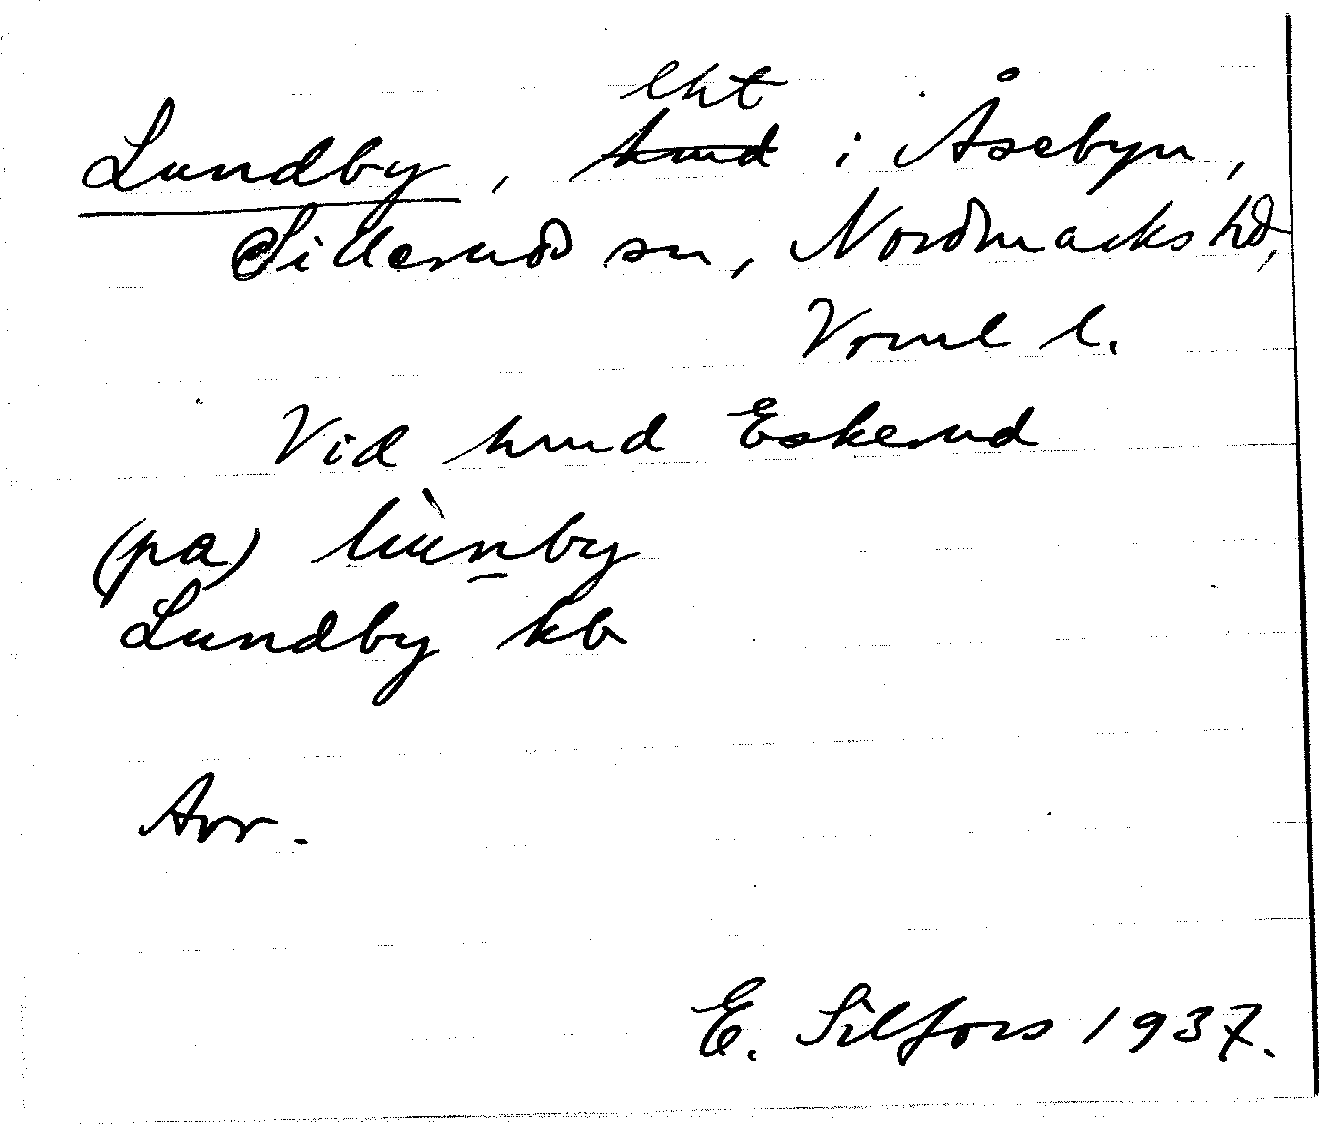 Lundby, lht i Åsebyn,
Sillerud sn, Nordmarks hd,
Vrml l.
Vid hmd Eskerud
(pa) lùnby
Lundby kb
Avr.
E. Silfors 1937.